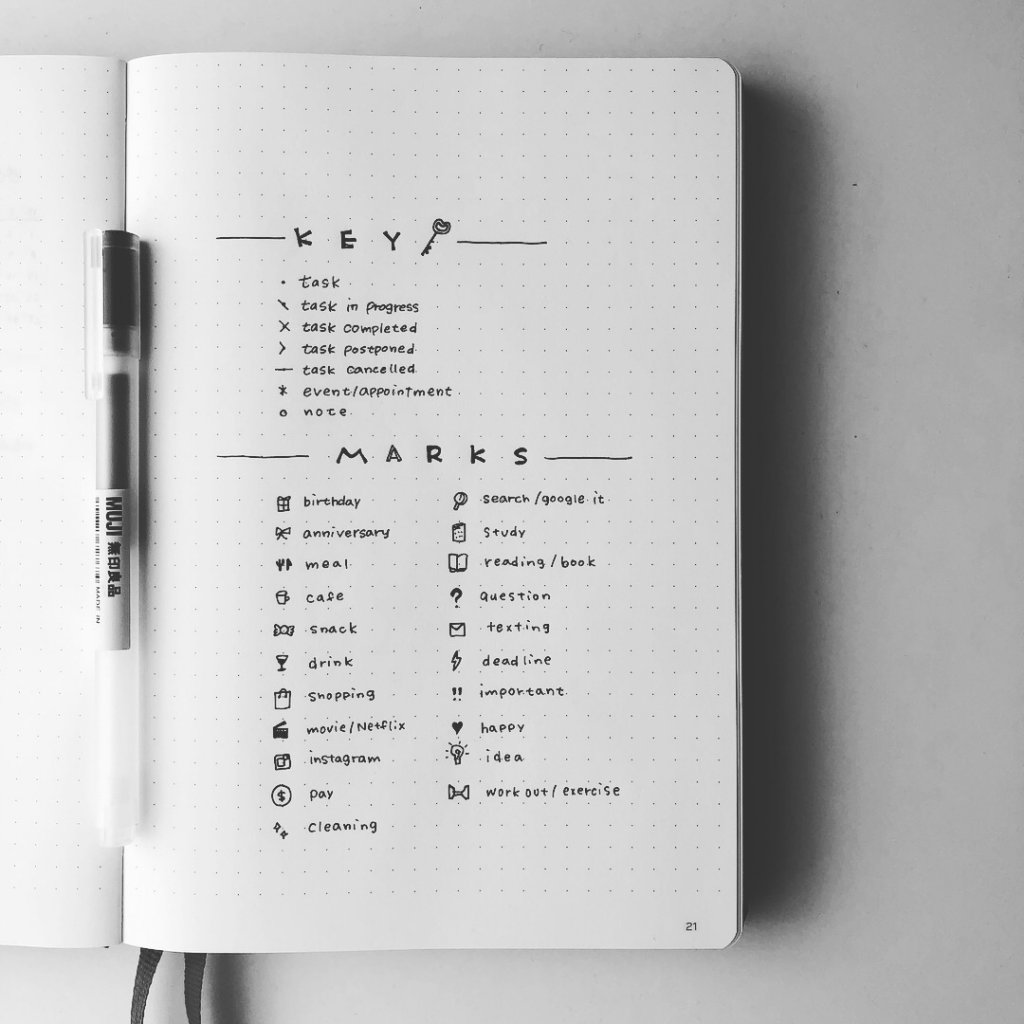 KEY
• task
\ task in progress
× task completed
> task postponed
— task cancelled
* event/appointment
○ note
MARKS
birthday
anniversary
meal
cafe
snack
drink
shopping
movie/Netflix
instagram
$ pay
cleaning
search/google it
study
reading/book
? question
texting
deadline
!! important
♥ happy
idea
work out/exercise
21
MUJI 無印良品